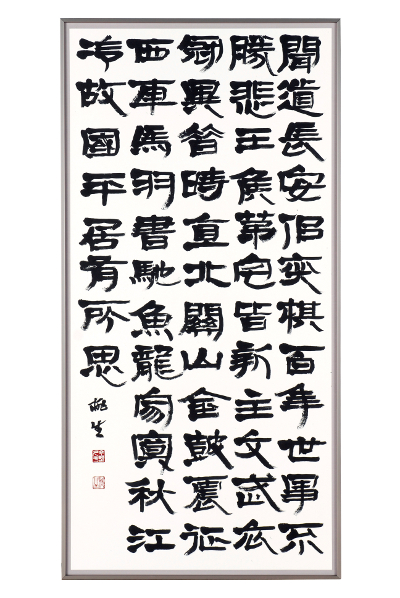 聞道長安佀奕棋百年世事不
勝悲王侯第宅皆新主文武衣
冠異昔時直北關山金鼓震征
西車馬羽書馳魚龍寂寞秋江
冷故國平居有所思